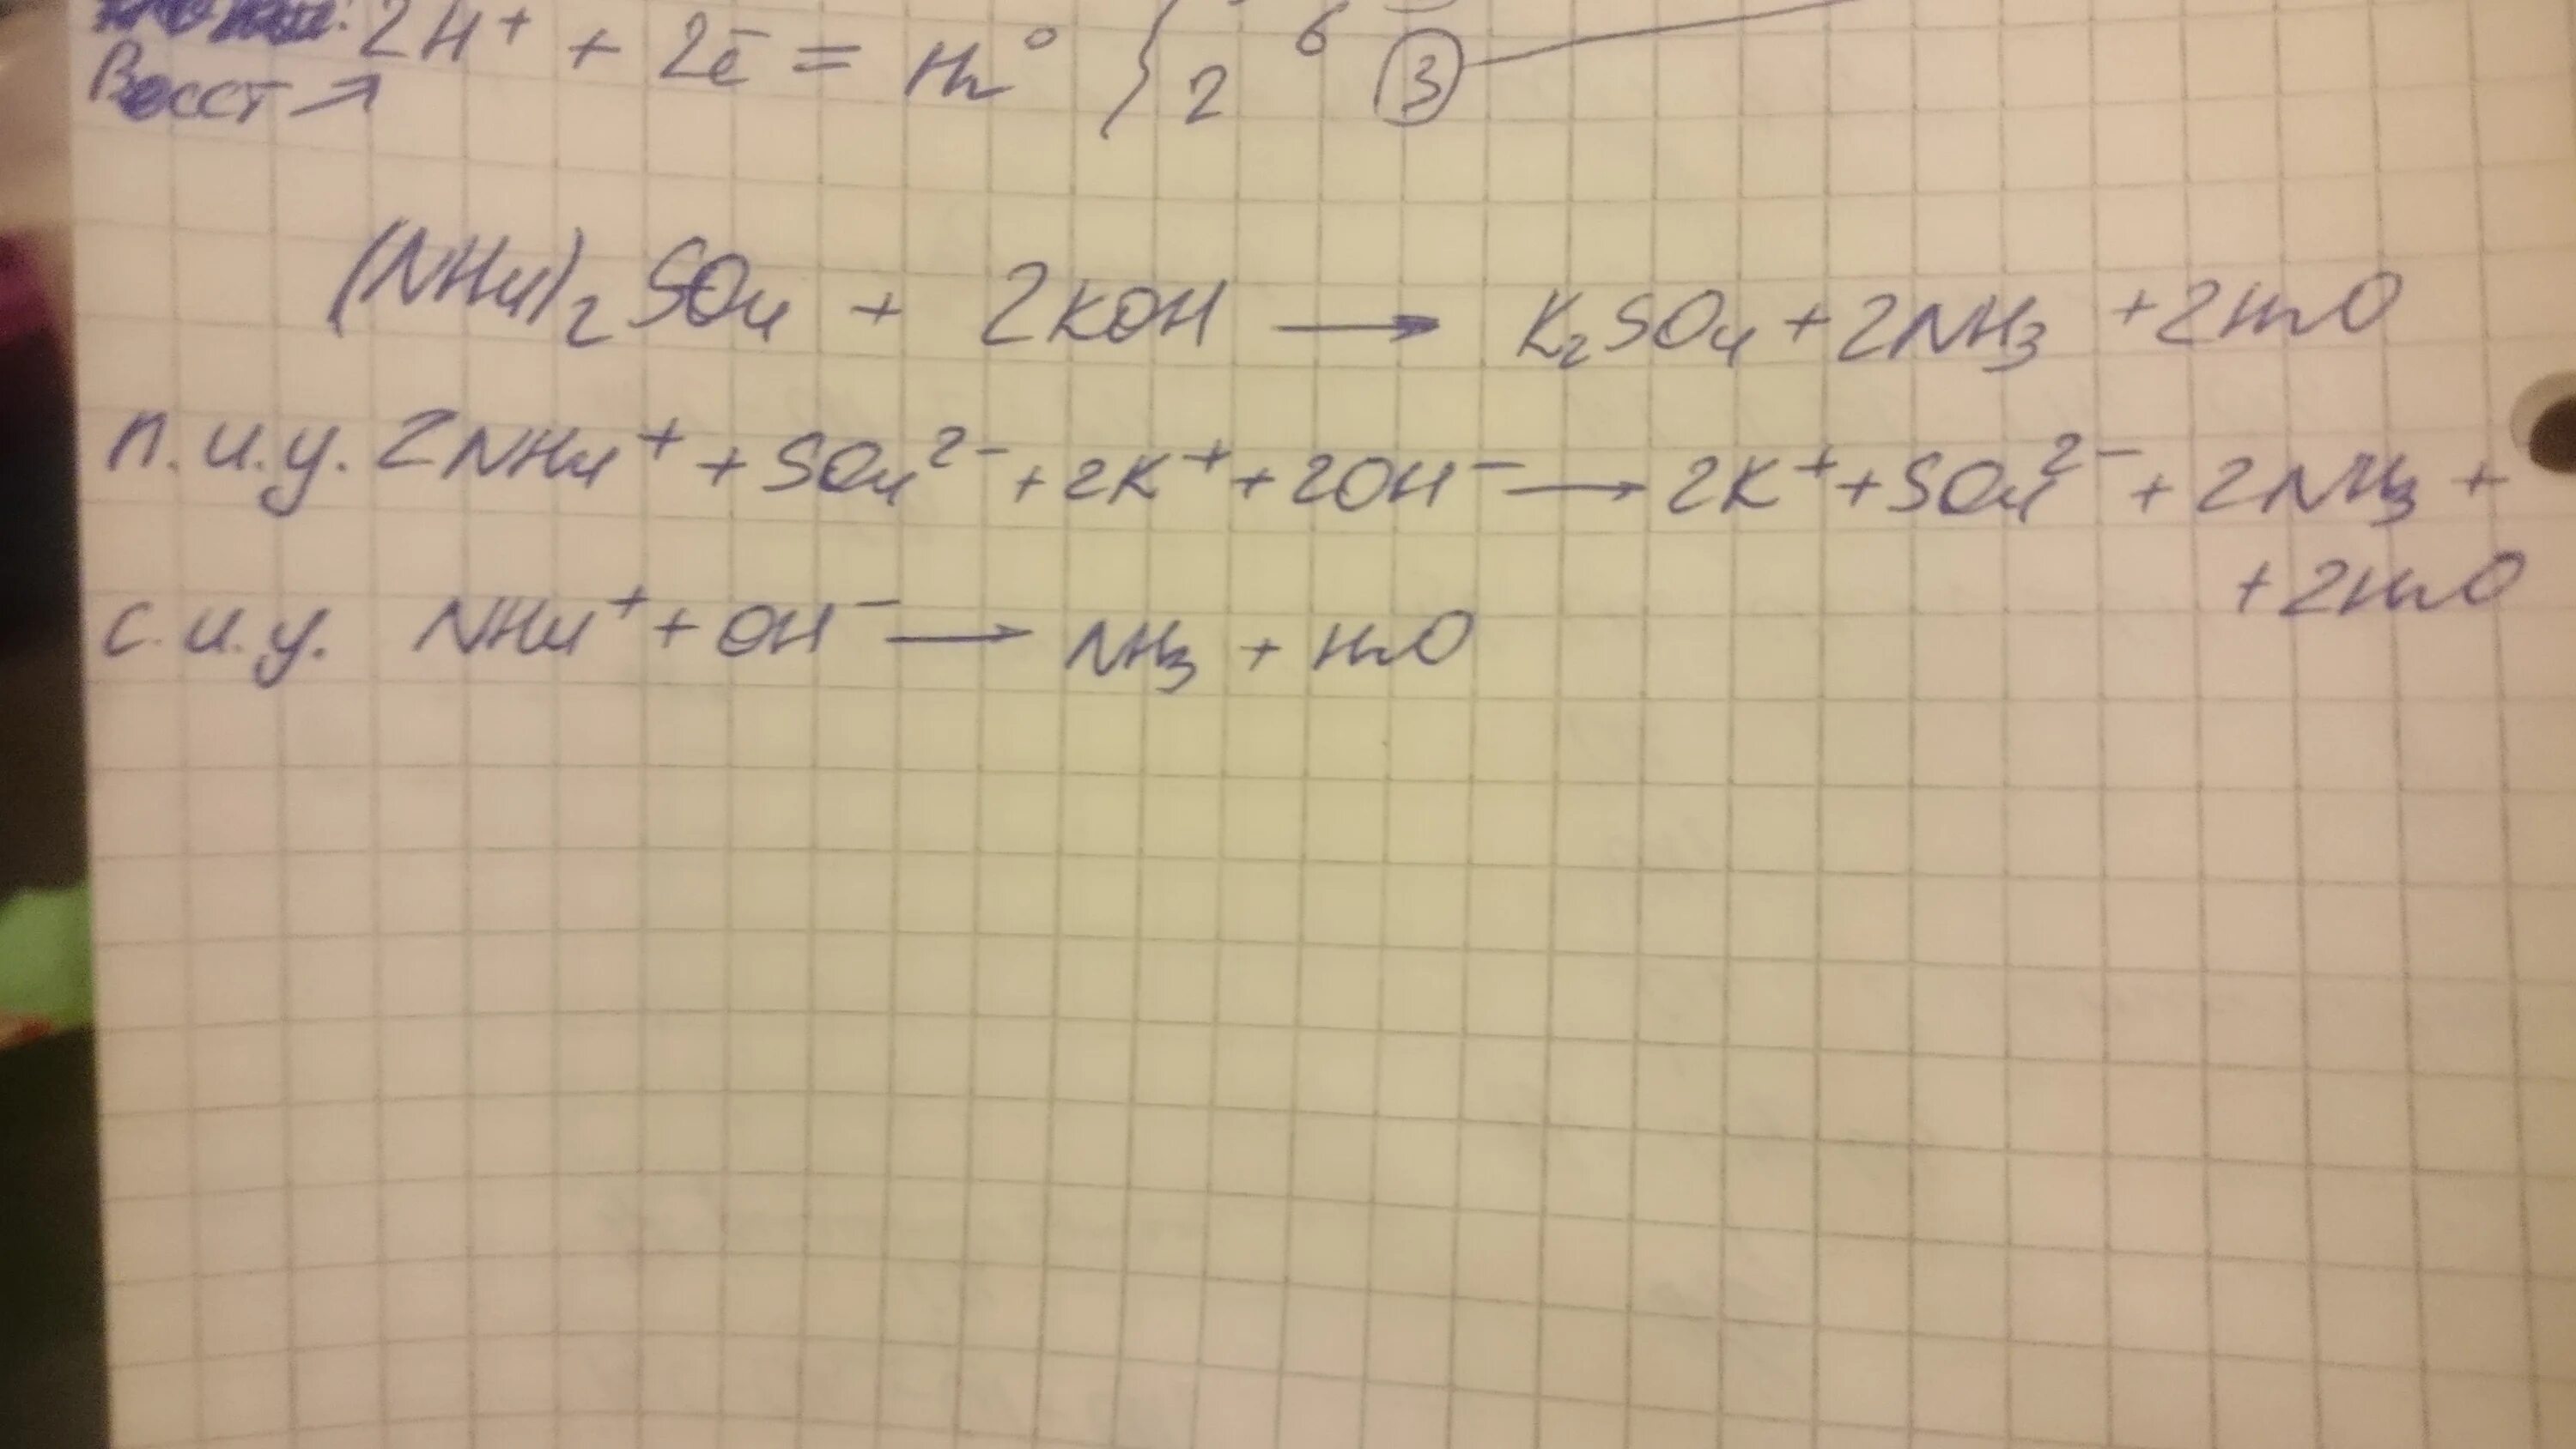 2H⁺ + 2ē = H₂⁰ } 2 6 3
Восст ↗
(NH₄)₂SO₄ + 2KOH → K₂SO₄ + 2NH₃ + 2H₂O
п.и.у. 2NH₄⁺ + SO₄²⁻ + 2K⁺ + 2OH⁻ → 2K⁺ + SO₄²⁻ + 2NH₃ +
+ 2H₂O
с.и.у. NH₄⁺ + OH⁻ → NH₃ + H₂O